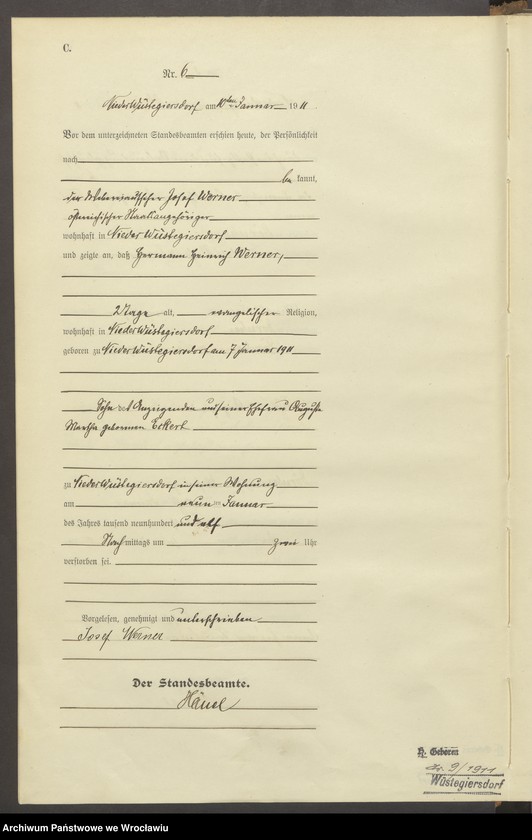 C.
Nr. 6
Nieder Wüstegiersdorf am 10ten Januar 1911
Vor dem unterzeichneten Standesbeamten erschien heute, der Persönlichkeit
nach
be kannt,
der Josef Werner
österreichischer Staatsangehöriger
wohnhaft in Nieder Wüstegiersdorf
und zeigte an, daß Hermann Heinrich Werner,
2 Tage alt, evangelischer Religion,
wohnhaft in Nieder Wüstegiersdorf
geboren zu Nieder Wüstegiersdorf am 7 Januar 1911
Sohn des Anzeigenden und seiner Ehefrau Auguste
Martha geborenen Eckert
zu Nieder Wüstegiersdorf in seiner Wohnung
am neun ten Januar
des Jahres tausend neunhundert und elf
Nach mittags um zwei Uhr
verstorben sei.
Vorgelesen, genehmigt und unterschrieben
Josef Werner
Der Standesbeamte.
Hänel
H. Geboren
Nr. 9/1911
Wüstegiersdorf
Archiwum Państwowe we Wrocławiu